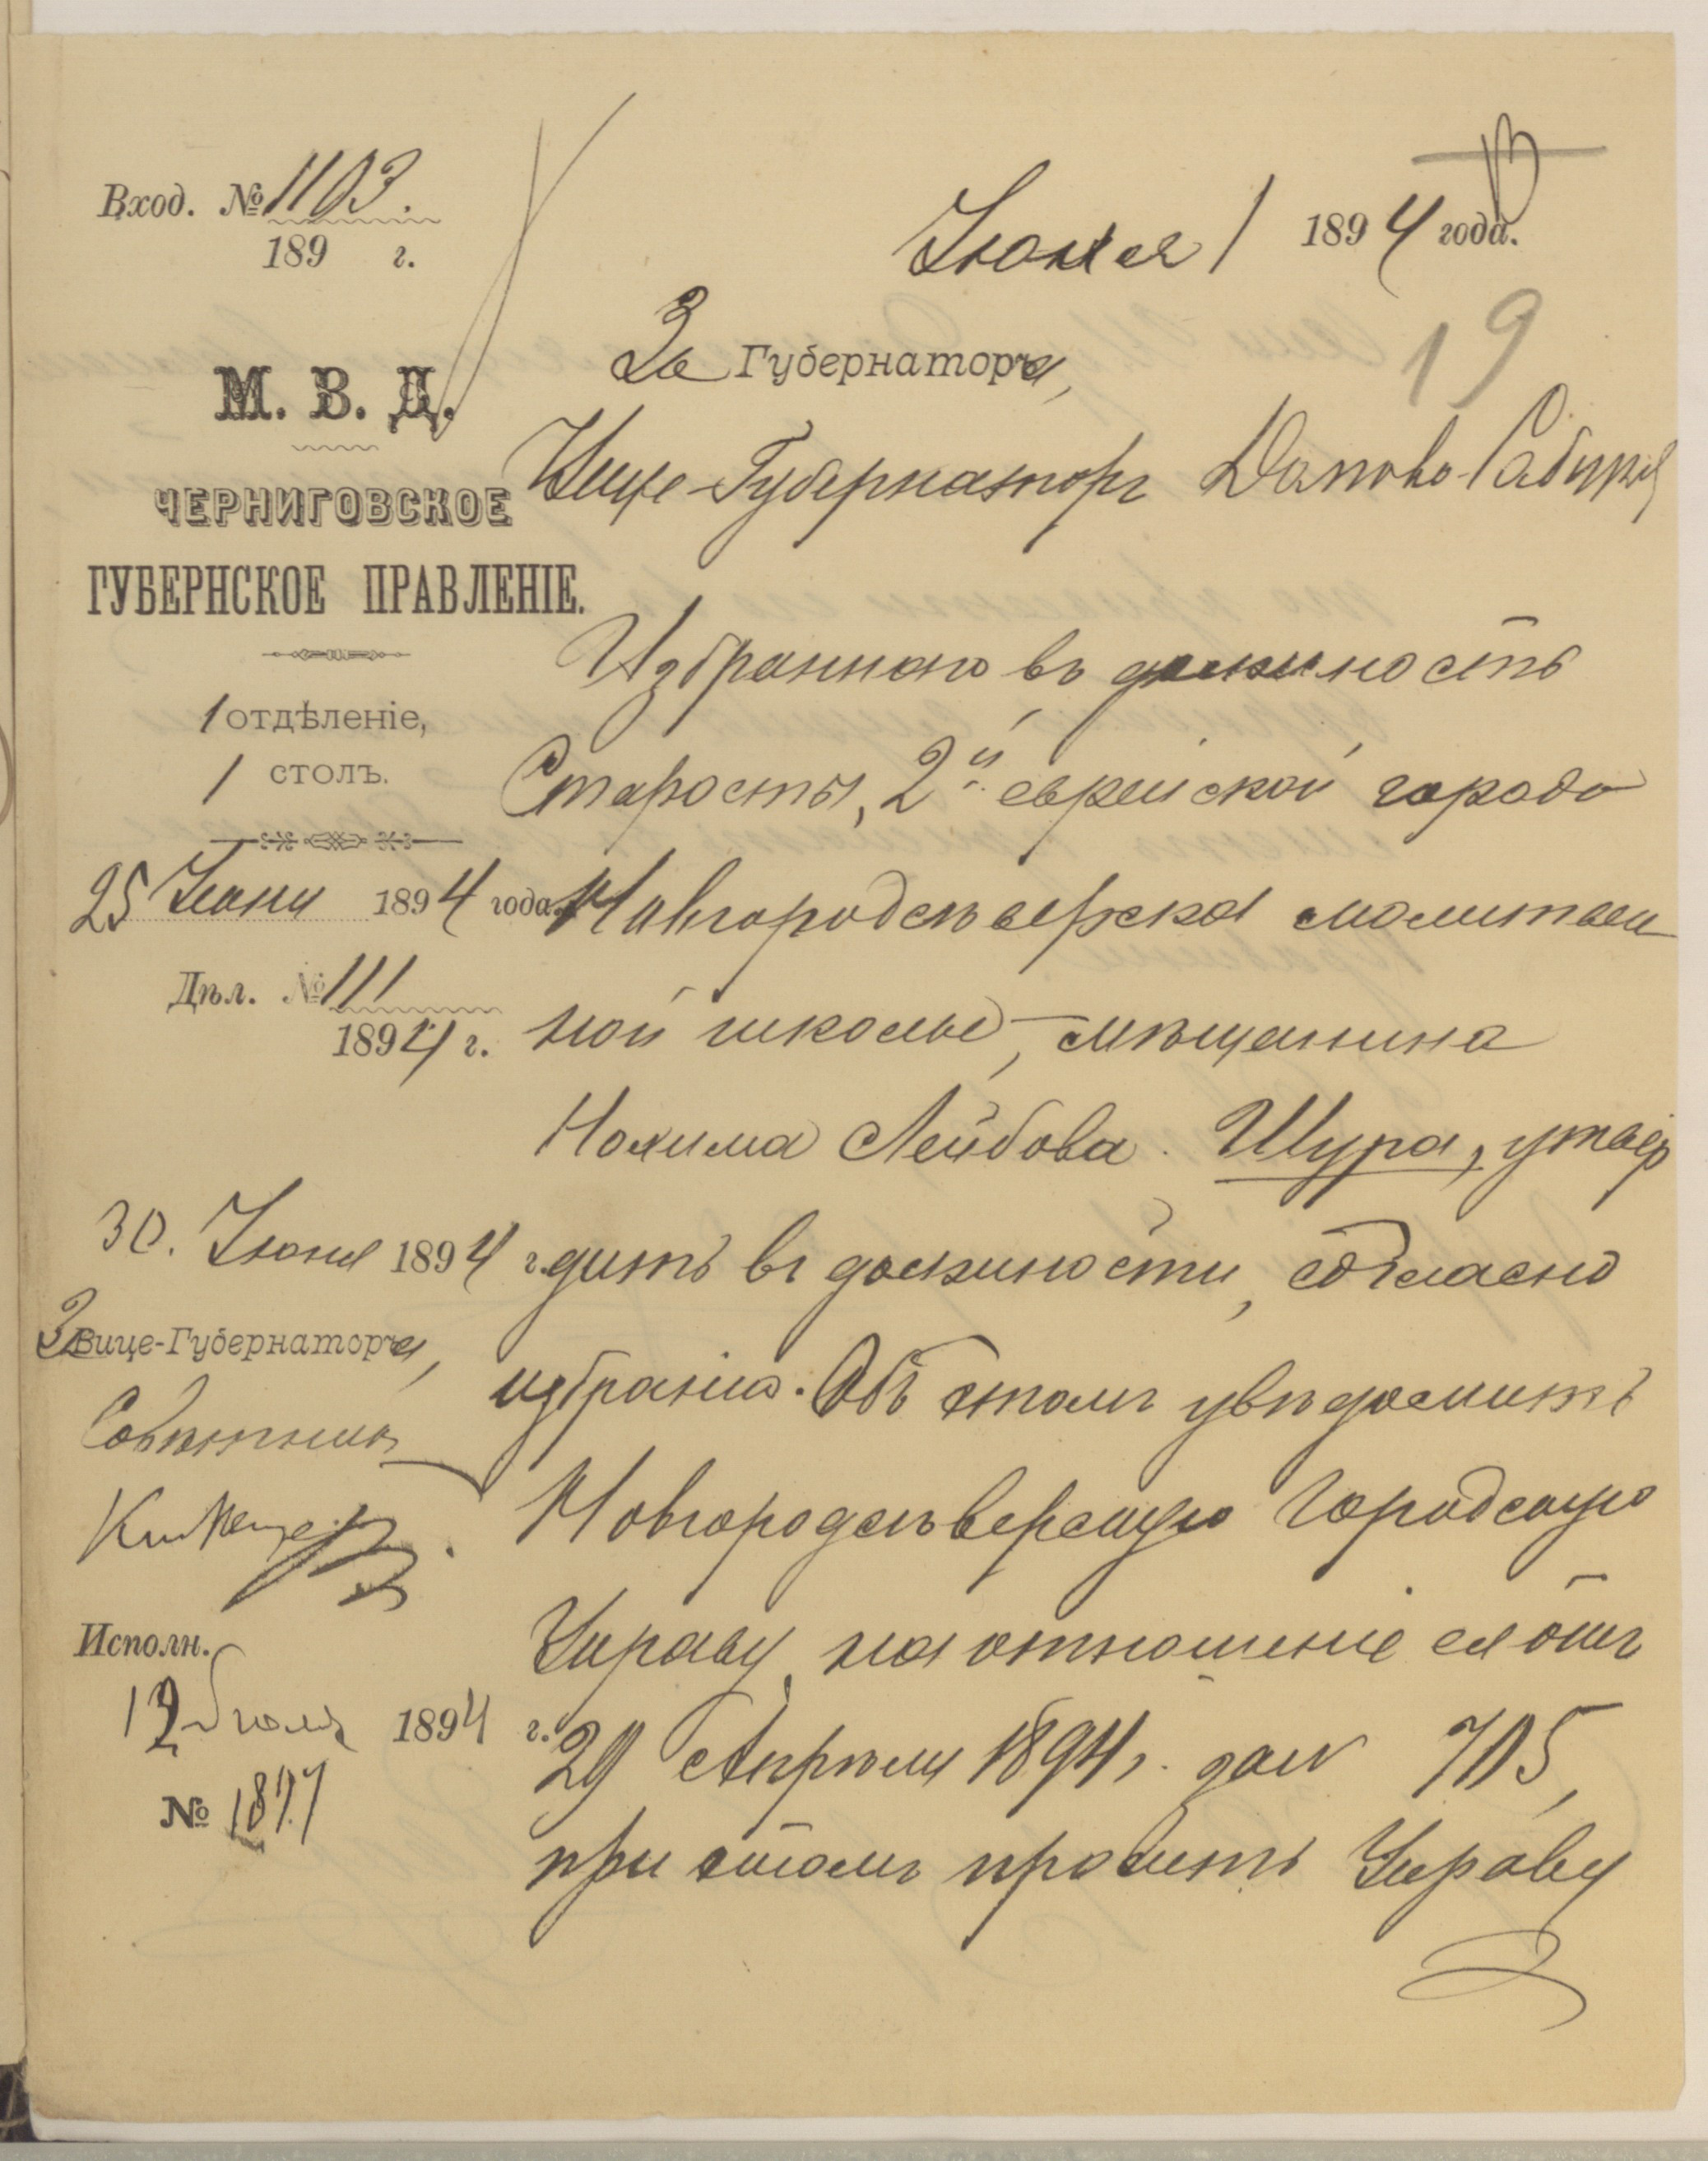 Вход. № 1103.
189 г.
Июля 1 1894 года.
19
За Губернатора,
Вице-Губернаторъ
М. В. Д.
ЧЕРНИГОВСКОЕ
ГУБЕРНСКОЕ ПРАВЛЕНІЕ.
1 отдѣленіе,
1 столъ.
25 Іюня 1894 года.
Дѣл. № 111
1894 г.
30. Іюня 1894 г.
За Вице-Губернатора,
Совѣтникъ
Исполн.
12 Іюля 1894 г.
№ 1877
Избраннаго въ должность
Старосты, 2й еврейской города
Новгородсѣверска молитвен
ной школы, мѣщанина
Нохима Лейбова Шура, утвер
дить въ должности, согласно
избранію. Объ этомъ увѣдомить
Новгородсѣверскую Городскую
Управу, на отношеніе ея отъ
29 Апрѣля 1894 г. за № 705,
при этомъ просить Управу